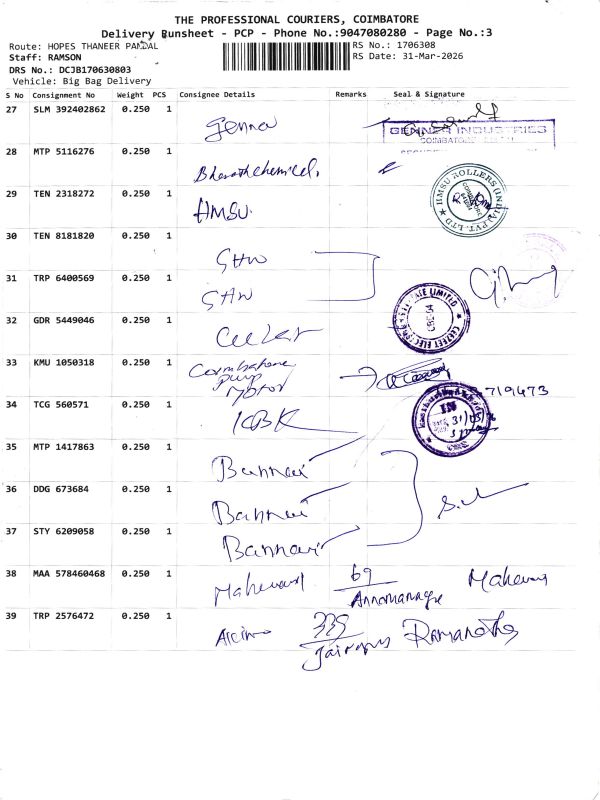 THE PROFESSIONAL COURIERS, COIMBATORE
Delivery Runsheet - PCP - Phone No.:9047080280 - Page No.:3
Route: HOPES THANEER PANDAL
RS No.: 1706308
Staff: RAMSON
RS Date: 31-Mar-2026
DRS No.: DCJB170630803
Vehicle: Big Bag Delivery
S No Consignment No Weight PCS Consignee Details Remarks Seal & Signature
27 SLM 392402862 0.250 1 Genna
GENNER INDUSTRIES
COIMBATORE
28 MTP 5116276 0.250 1 Bharathchemical
29 TEN 2318272 0.250 1 HMSU
HMSU ROLLERS (INDIA) PVT. LTD
COIMBATORE
30 TEN 8181820 0.250 1 SHW
31 TRP 6400569 0.250 1 SHW
32 GDR 5449046 0.250 1
33 KMU 1050318 0.250 1 Coimbatore
pump
Motor
719473
34 TCG 560571 0.250 1 KBK
35 MTP 1417863 0.250 1 Bannari
36 DDG 673684 0.250 1 Bannari
37 STY 6209058 0.250 1 Bannari
38 MAA 578460468 0.250 1 69
Annamanagar
39 TRP 2576472 0.250 1 339